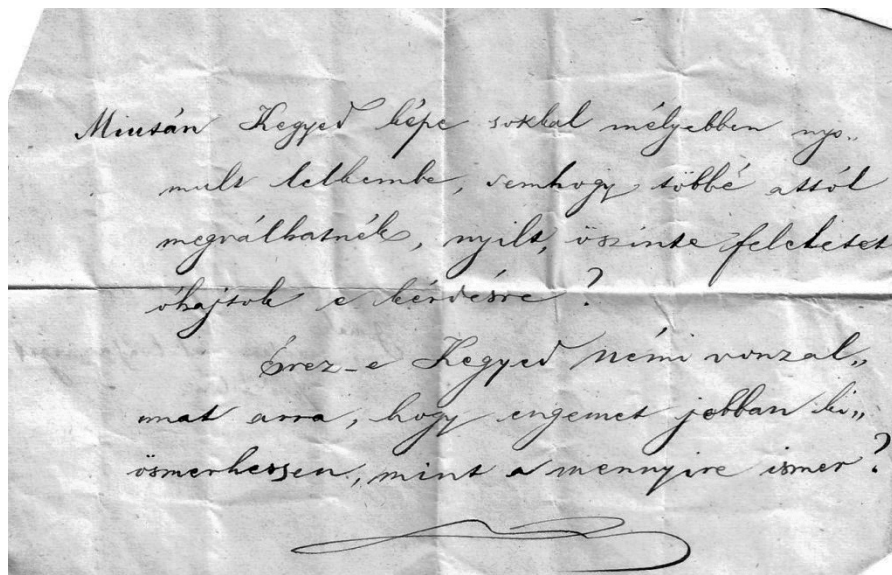 Miután Kegyed képe sokkal mélyebben nyo„
mult lelkembe, semhogy többé attól
megválhatnék, nyilt, öszinte feleletet
óhajtok e kérdésre?
Érez-e Kegyed némi vonzal„
mat arra, hogy engemet jobban ki„
ösmerhessen, mint a mennyire ismer?